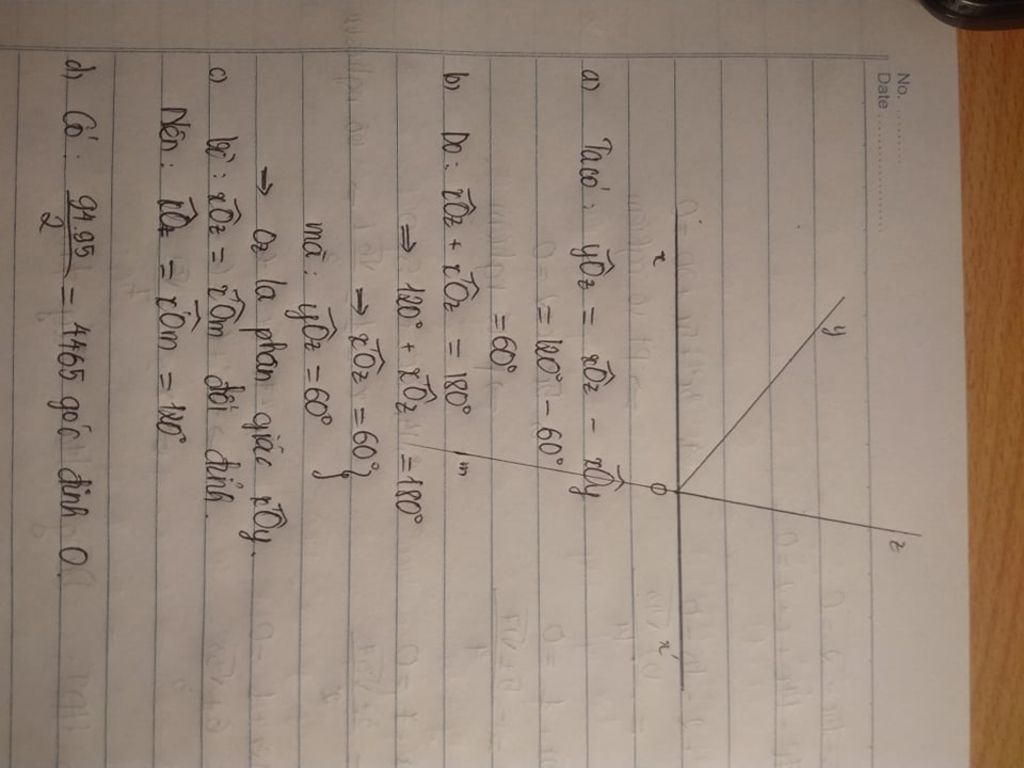 No. ........
Date ..................
y
z
x
x'
O
m
a) Ta có: yOz = xOz - xOy
= 120° - 60°
= 60°
b) Do: xOz + x'Oz = 180°
⇒ 120° + x'Oz = 180°
→ x'Oz = 60° }
mà: yOz = 60°
→ Oz la phan giác x'Oy.
c) bỏ: xOz = x'Om đối đỉnh.
Nên: xOz = x'Om = 120°
d) Có: 94.95 / 2 = 4465 góc đỉnh O.